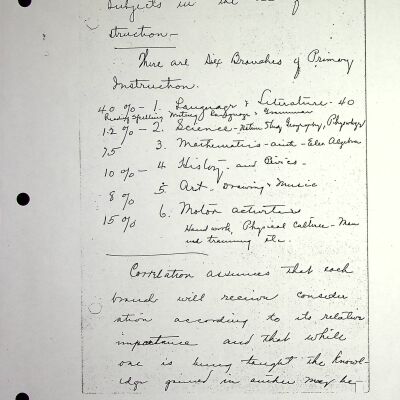 Subjects in the of
struction.—
There are Six Branches of Primary
Instruction.
40 % — 1. Language & Literature — 40
Reading Spelling Writing Language & Grammar
12 % — 2. Science — Nature Study, Geography, Physiology
75 3. Mathematics — arith — Elec Algebra
10 % — 4 History and Civics —
8 % 5. Art — Drawing & Music
15 % 6. Motor activities
Hand work, Physical Culture — Man
ual training etc.
Correlation assumes that each
branch will receive consider
ation according to its relative
importance and that while
one is being taught the knowl-
edge gained in another may be